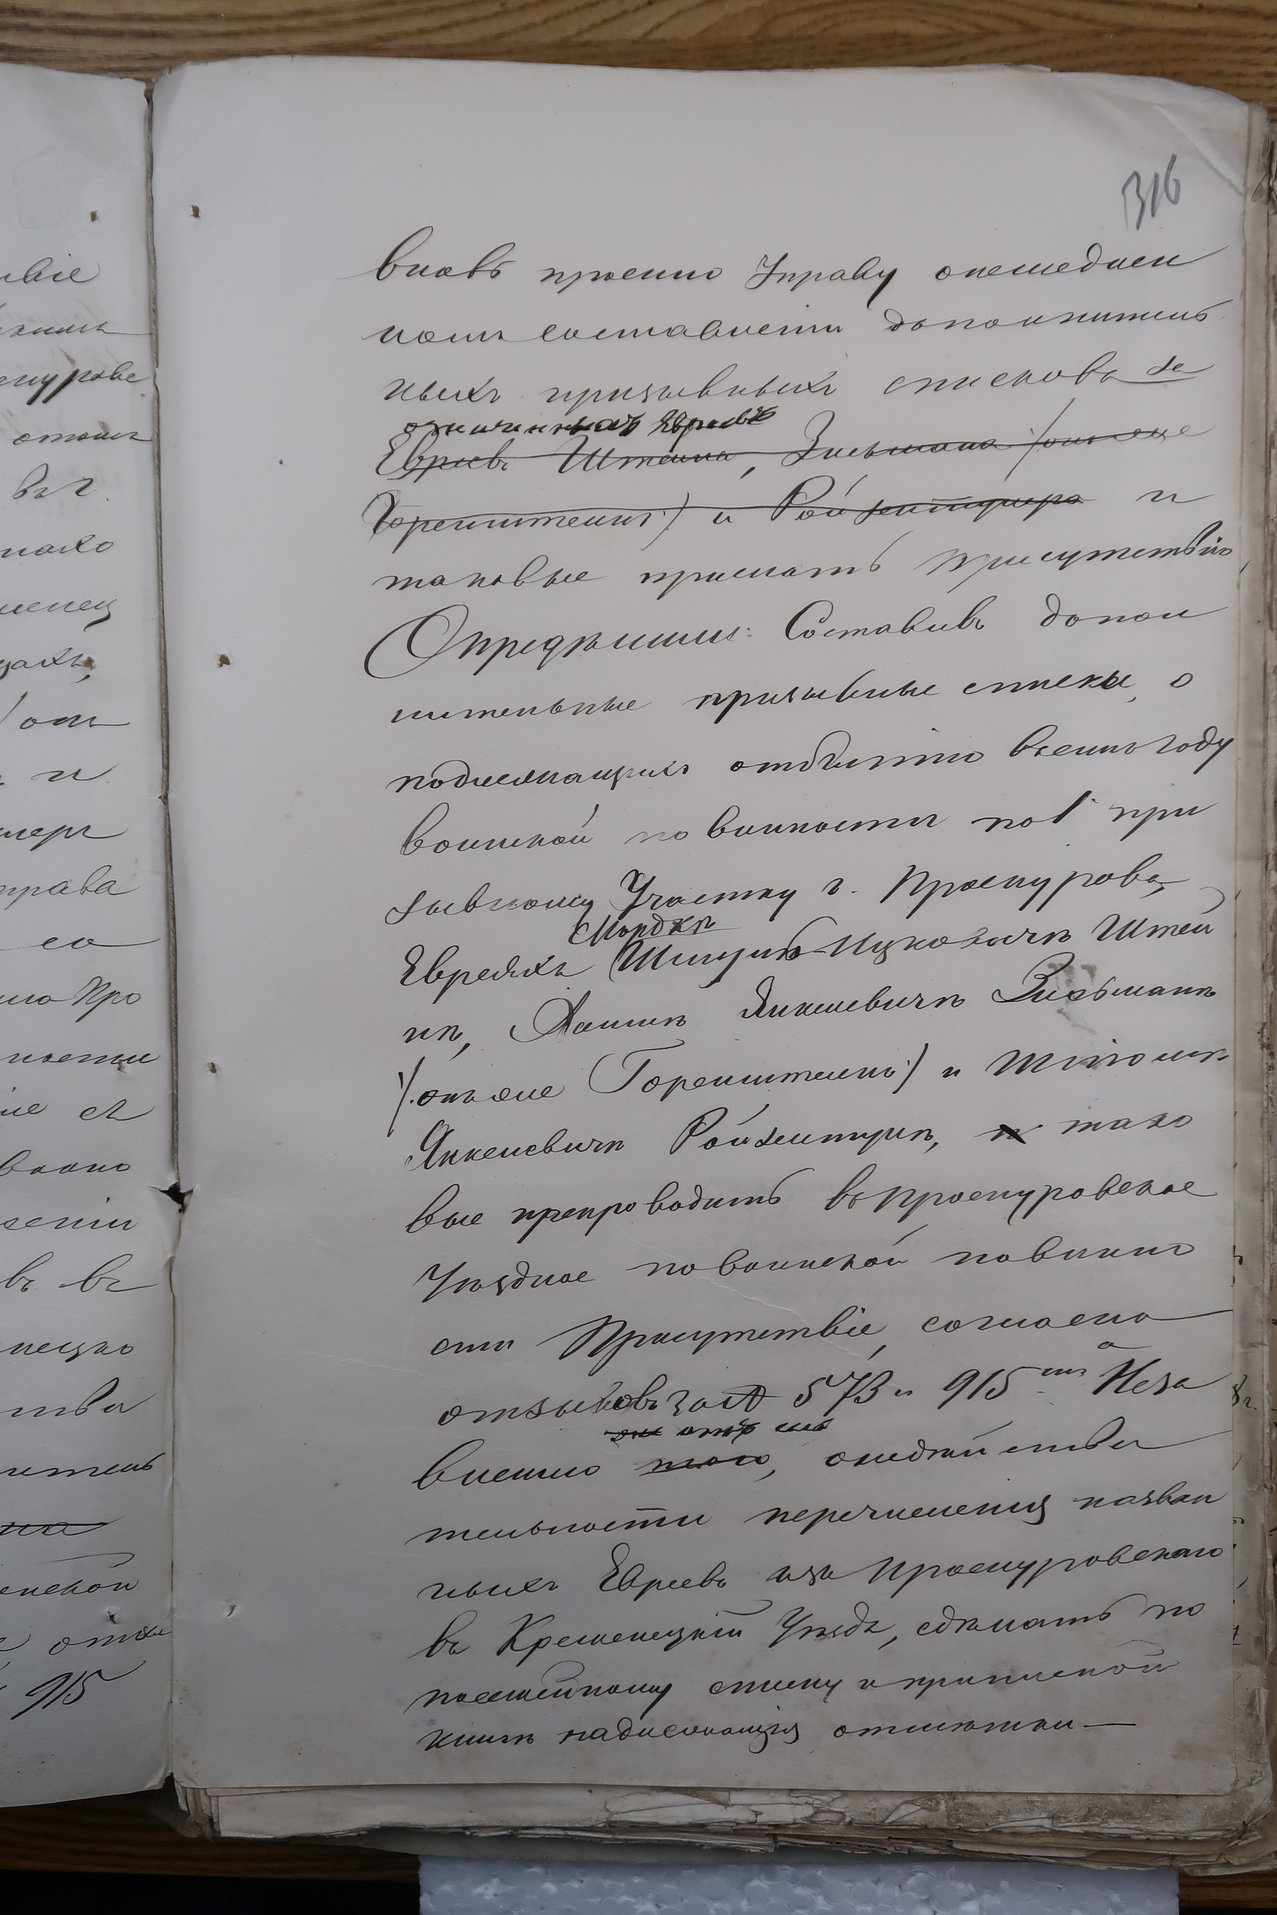 316
вновь проситъ Управу о немедлен
номъ составленіи дополнитель
ныхъ призывныхъ списковъ
означенныхъ Евреевъ
Евреевъ Штейна, Зисьмана (онъ же
Горенштейнъ) и Ройзентулера и
таковые прислать Присутствію
Опредѣлили: Составивъ допол
нительные призывные списки, о
подлежащихъ отбытію въ семъ году
воинской повинности по 1 при
зывному Участку г. Проскурова,
Мордко
Евреяхъ Шмулъ-Ицковичѣ Штей
нѣ, Янкелевичѣ Зисьманѣ
(онъ же Горенштейнъ) и
Янкелевичѣ Ройзентулѣ, тако
вые препроводить въ Проскуровское
Уѣздное по воинской повинно
сти Присутствіе, согласно
отзывовъ за № 573 и 915. Неза
висимо того, о недѣйстви
тельности перечисленія назван
ныхъ Евреевъ изъ Проскуровскаго
въ Кременецкій Уѣздъ, сдѣлать по
посемейному списку и приписной
книгѣ надлежащія отмѣтки —
ніе
отъ
и
управа
со
Про
не съ
въ въ
915